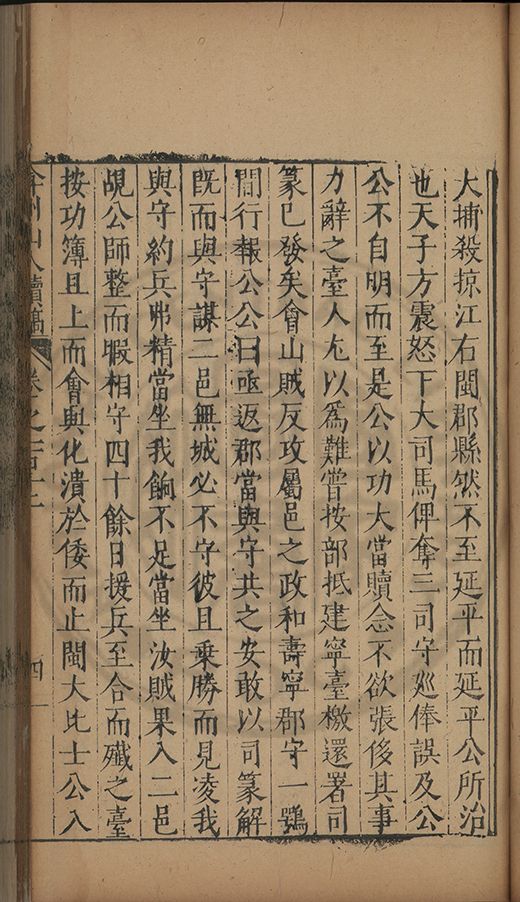 大捕殺掠江右閩郡縣然不至延平而延平公所治
也天子方震怒下大司馬俾奪三司守廵俸誤及公
公不自明而至是公以功大當贖念不欲張侈其事
力辭之臺人尤以爲難嘗按部抵建寧臺檄還署司
篆已發矣會山賊反攻屬邑之政和壽寧郡守一鶚
間行報公公曰亟返郡當與守共之安敢以司篆解
既而與守謀二邑無城必不守彼且乗勝而見凌我
與守約兵弗精當坐我餉不足當坐汝賊果入二邑
覘公師整而暇相守四十餘日援兵至合而殲之臺
按功簿且上而會與化潰於倭而止閩大比士公入
弇州山人續稿 卷之一百十二 四